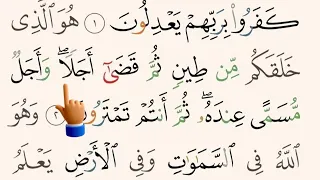 كَفَرُوا۟ بِرَبِّهِمْ يَعْدِلُونَ ١ هُوَ ٱلَّذِى
خَلَقَكُم مِّن طِينٍ ثُمَّ قَضَىٰٓ أَجَلًا ۖ وَأَجَلٌ
مُّسَمًّى عِندَهُۥ ۖ ثُمَّ أَنتُمْ تَمْتَرُونَ ٢ وَهُوَ
ٱللَّهُ فِى ٱلسَّمَـٰوَٰتِ وَفِى ٱلْأَرْضِ يَعْلَمُ